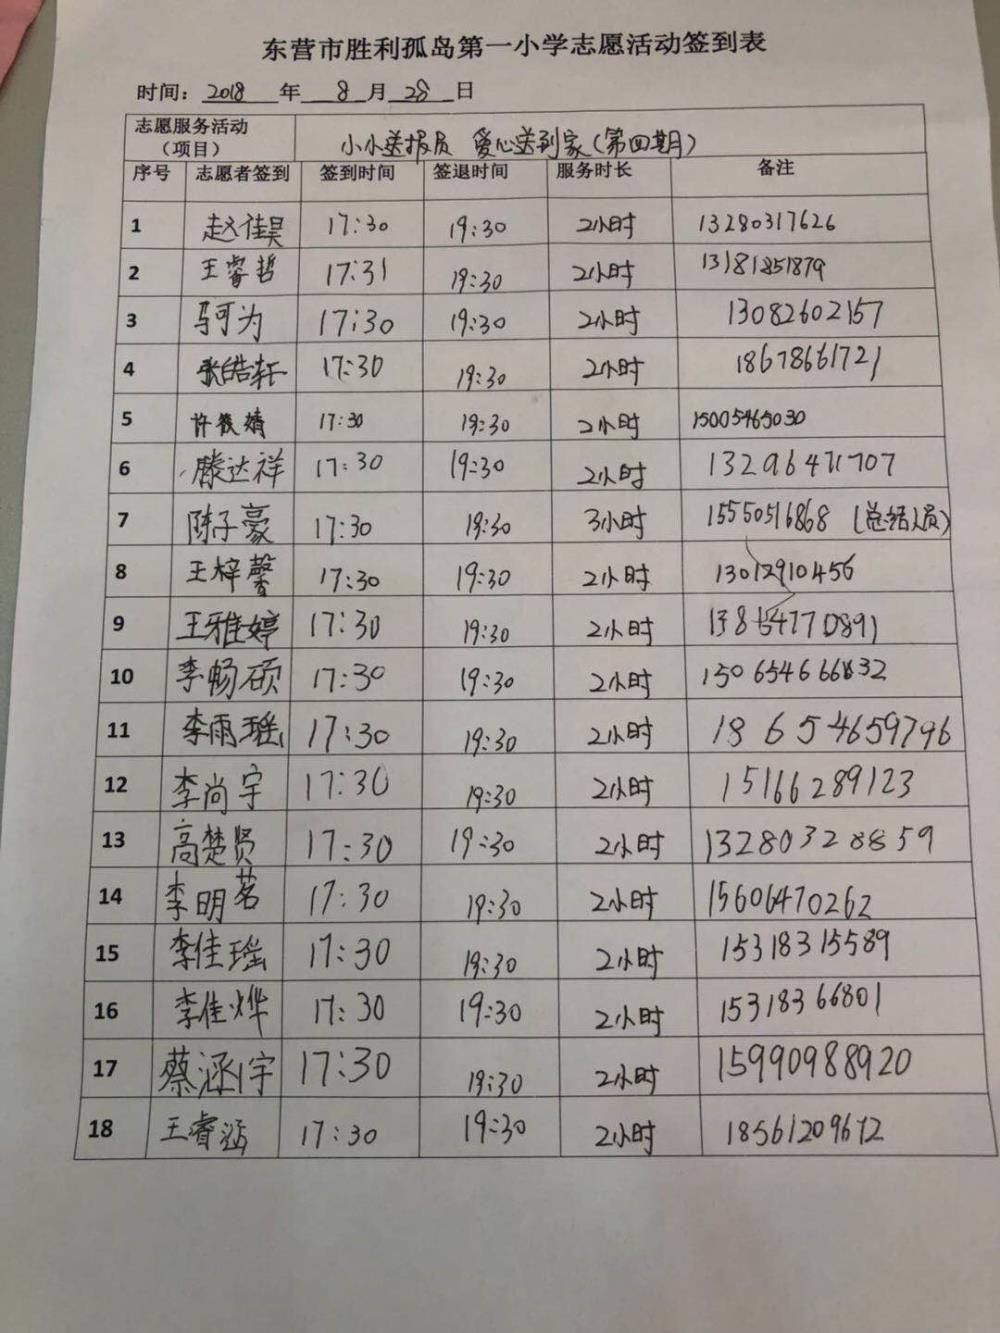 东营市胜利孤岛第一小学志愿活动签到表
时间：2018年8月28日
志愿服务活动（项目） 小小送报员 爱心送到家（第四期）
序号 志愿者签到 签到时间 签退时间 服务时长 备注
1 赵佳昊 17:30 19:30 2小时 13280317626
2 王睿哲 17:31 19:30 2小时 13181851879
3 马可为 17:30 19:30 2小时 13082602157
4 张皓轩 17:30 19:30 2小时 18678661721
5 许筱婧 17:30 19:30 2小时 15005465030
6 滕达祥 17:30 19:30 2小时 13296471707
7 陈子豪 17:30 19:30 3小时 15550516868（总结人员）
8 王梓馨 17:30 19:30 2小时 13012910456
9 王雅婷 17:30 19:30 2小时
10 李畅硕 17:30 19:30 2小时
11 李雨瑶 17:30 19:30 2小时 18654659796
12 李尚宇 17:30 19:30 2小时 15166289123
13 高楚贤 17:30 19:30 2小时 13280328859
14 李明茗 17:30 19:30 2小时 15606470262
15 李佳瑶 17:30 19:30 2小时 15318315589
16 李佳烨 17:30 19:30 2小时 15318366801
17 蔡涵宇 17:30 19:30 2小时 15990988920
18 王睿涵 17:30 19:30 2小时 18561209672